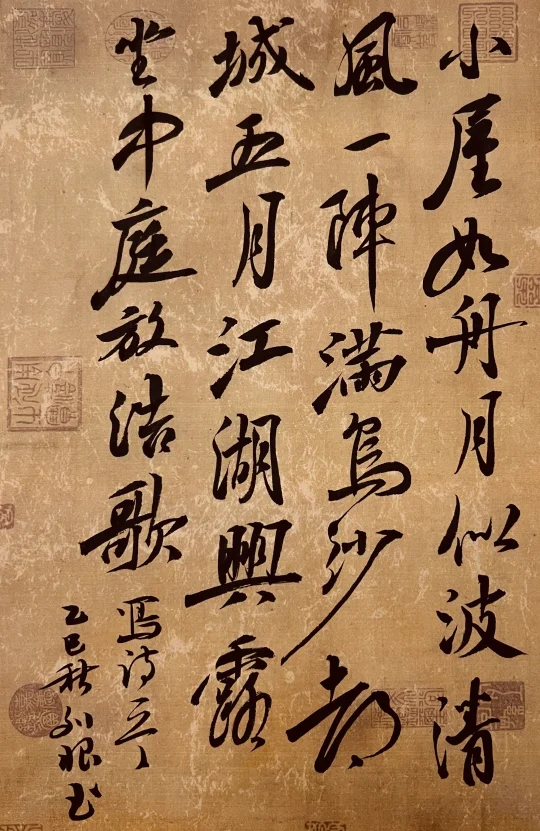 小屋如舟月似波清
風一陣滿烏紗都
城五月江湖興露
坐中庭放浩歌
詩
乙巳秋根书